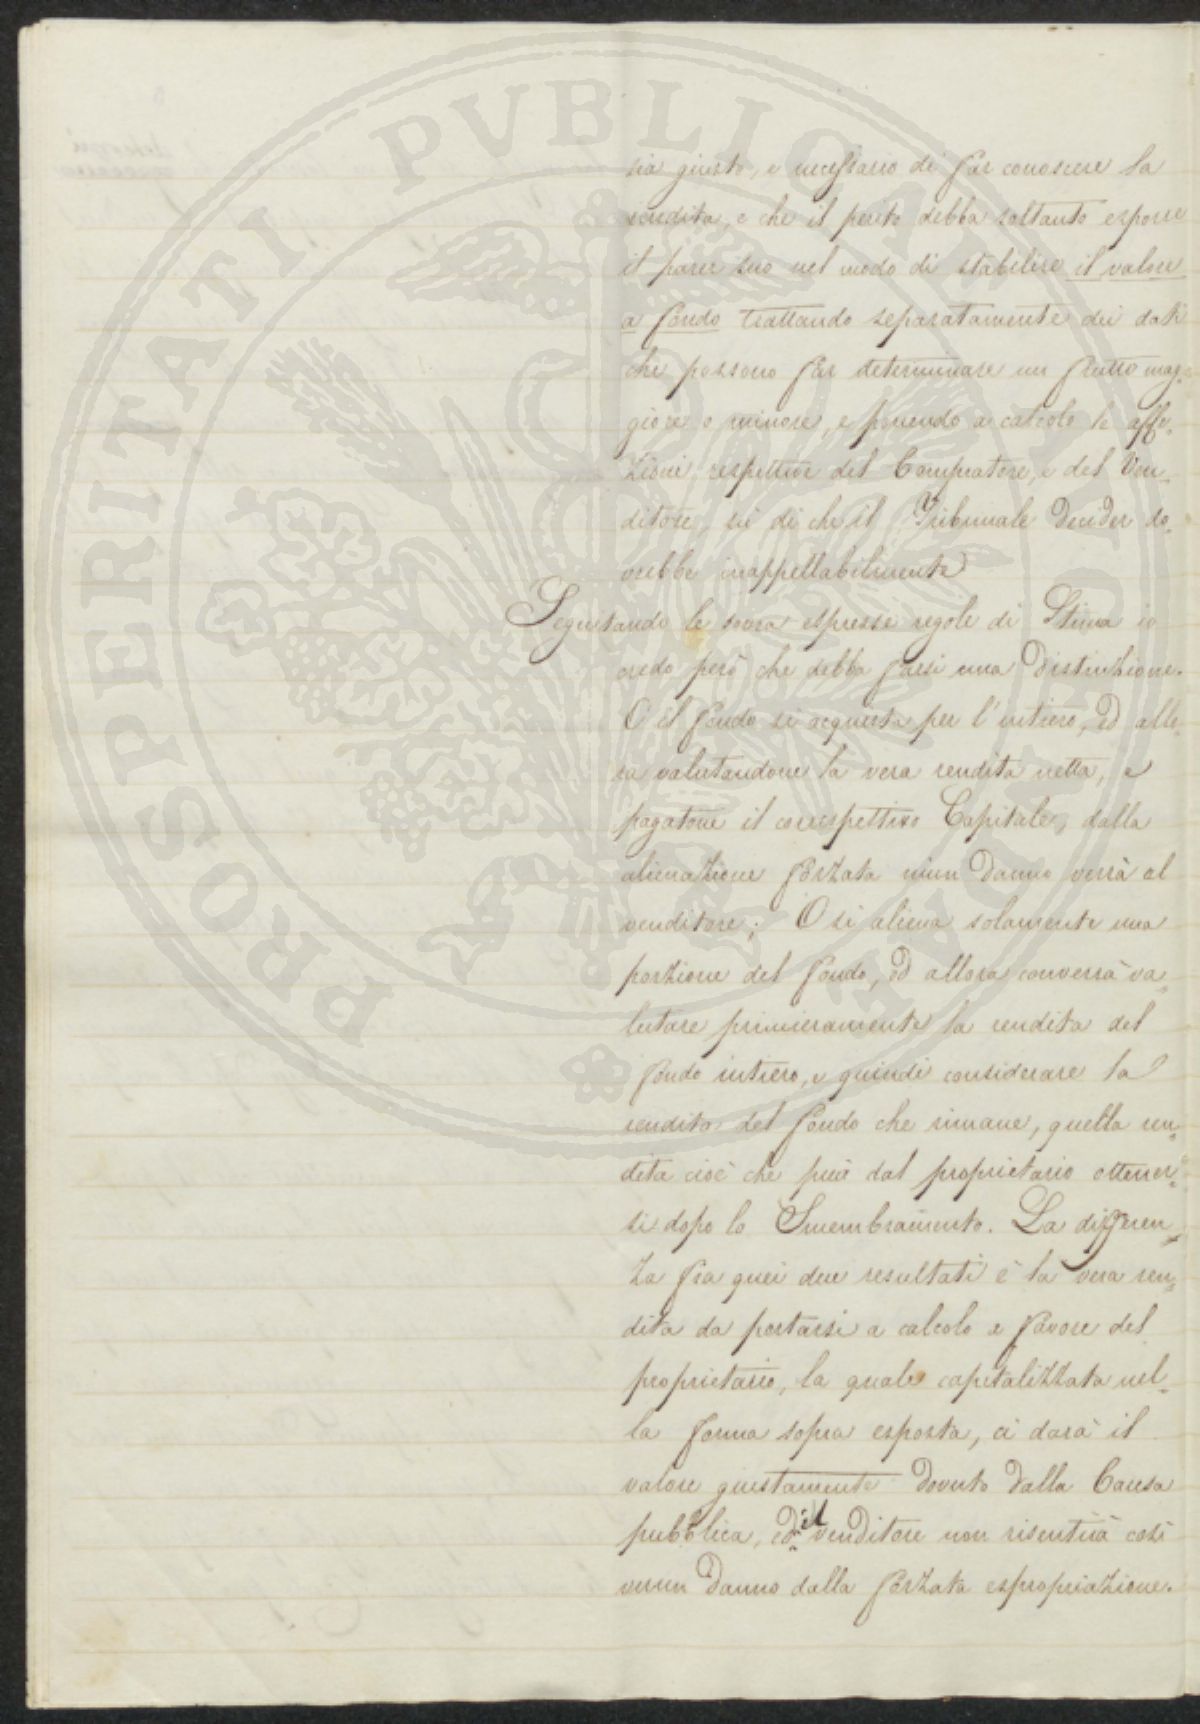 PROSPERITATI PUBLICAE AUGENDAE
sia giusto, e necessario di far conoscere la
rendita, e che il perito debba soltanto esporre
il parer suo nel modo di stabilire il valore
a fondo trattando separatamente dei dati
che possono far determinare un frutto mag-
giore o minore, e ponendo a calcolo le affe-
zioni respettive del Compratore, e del Ven-
ditore, su di che il Tribunale decider do-
vrebbe inappellabilmente
Seguitando le sovra espresse regole di Stima io
credo però che debba farsi una distinzione.
O il fondo si acquista per l'intiero, ed allo-
ra valutandone la vera rendita netta, e
pagatone il correspettivo Capitale, dalla
alienazione forzata niun danno verrà al
venditore; O si aliena solamente una
porzione del fondo, ed allora converrà va-
lutare primieramente la rendita del
fondo intiero, e quindi considerare la
rendita del fondo che rimane, quella ren-
dita cioè che può dal proprietario ottener-
si dopo lo Smembramento. La differen-
za fra quei due resultati è la vera ren-
dita da portarsi a calcolo a favore del
proprietario, la quale capitalizzata nel-
la forma sopra esposta, ci darà il
valore giustamente dovuto dalla Causa
pubblica, ed il venditore non risentirà così
verun danno dalla forzata espropriazione.